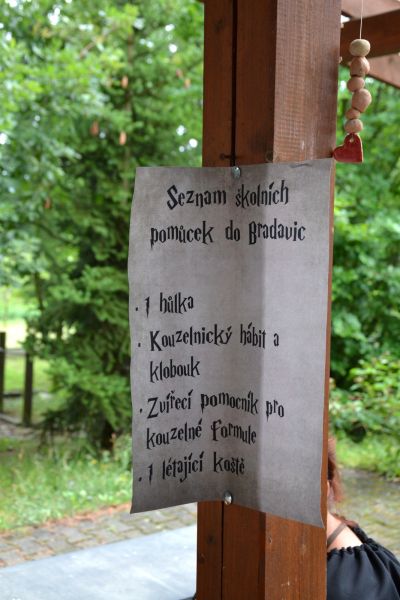 Seznam školních
pomůcek do Bradavic
. 1 hůlka
. Kouzelnický hábit a
klobouk
. Zvířecí pomocník pro
kouzelné formule
. 1 létající koště